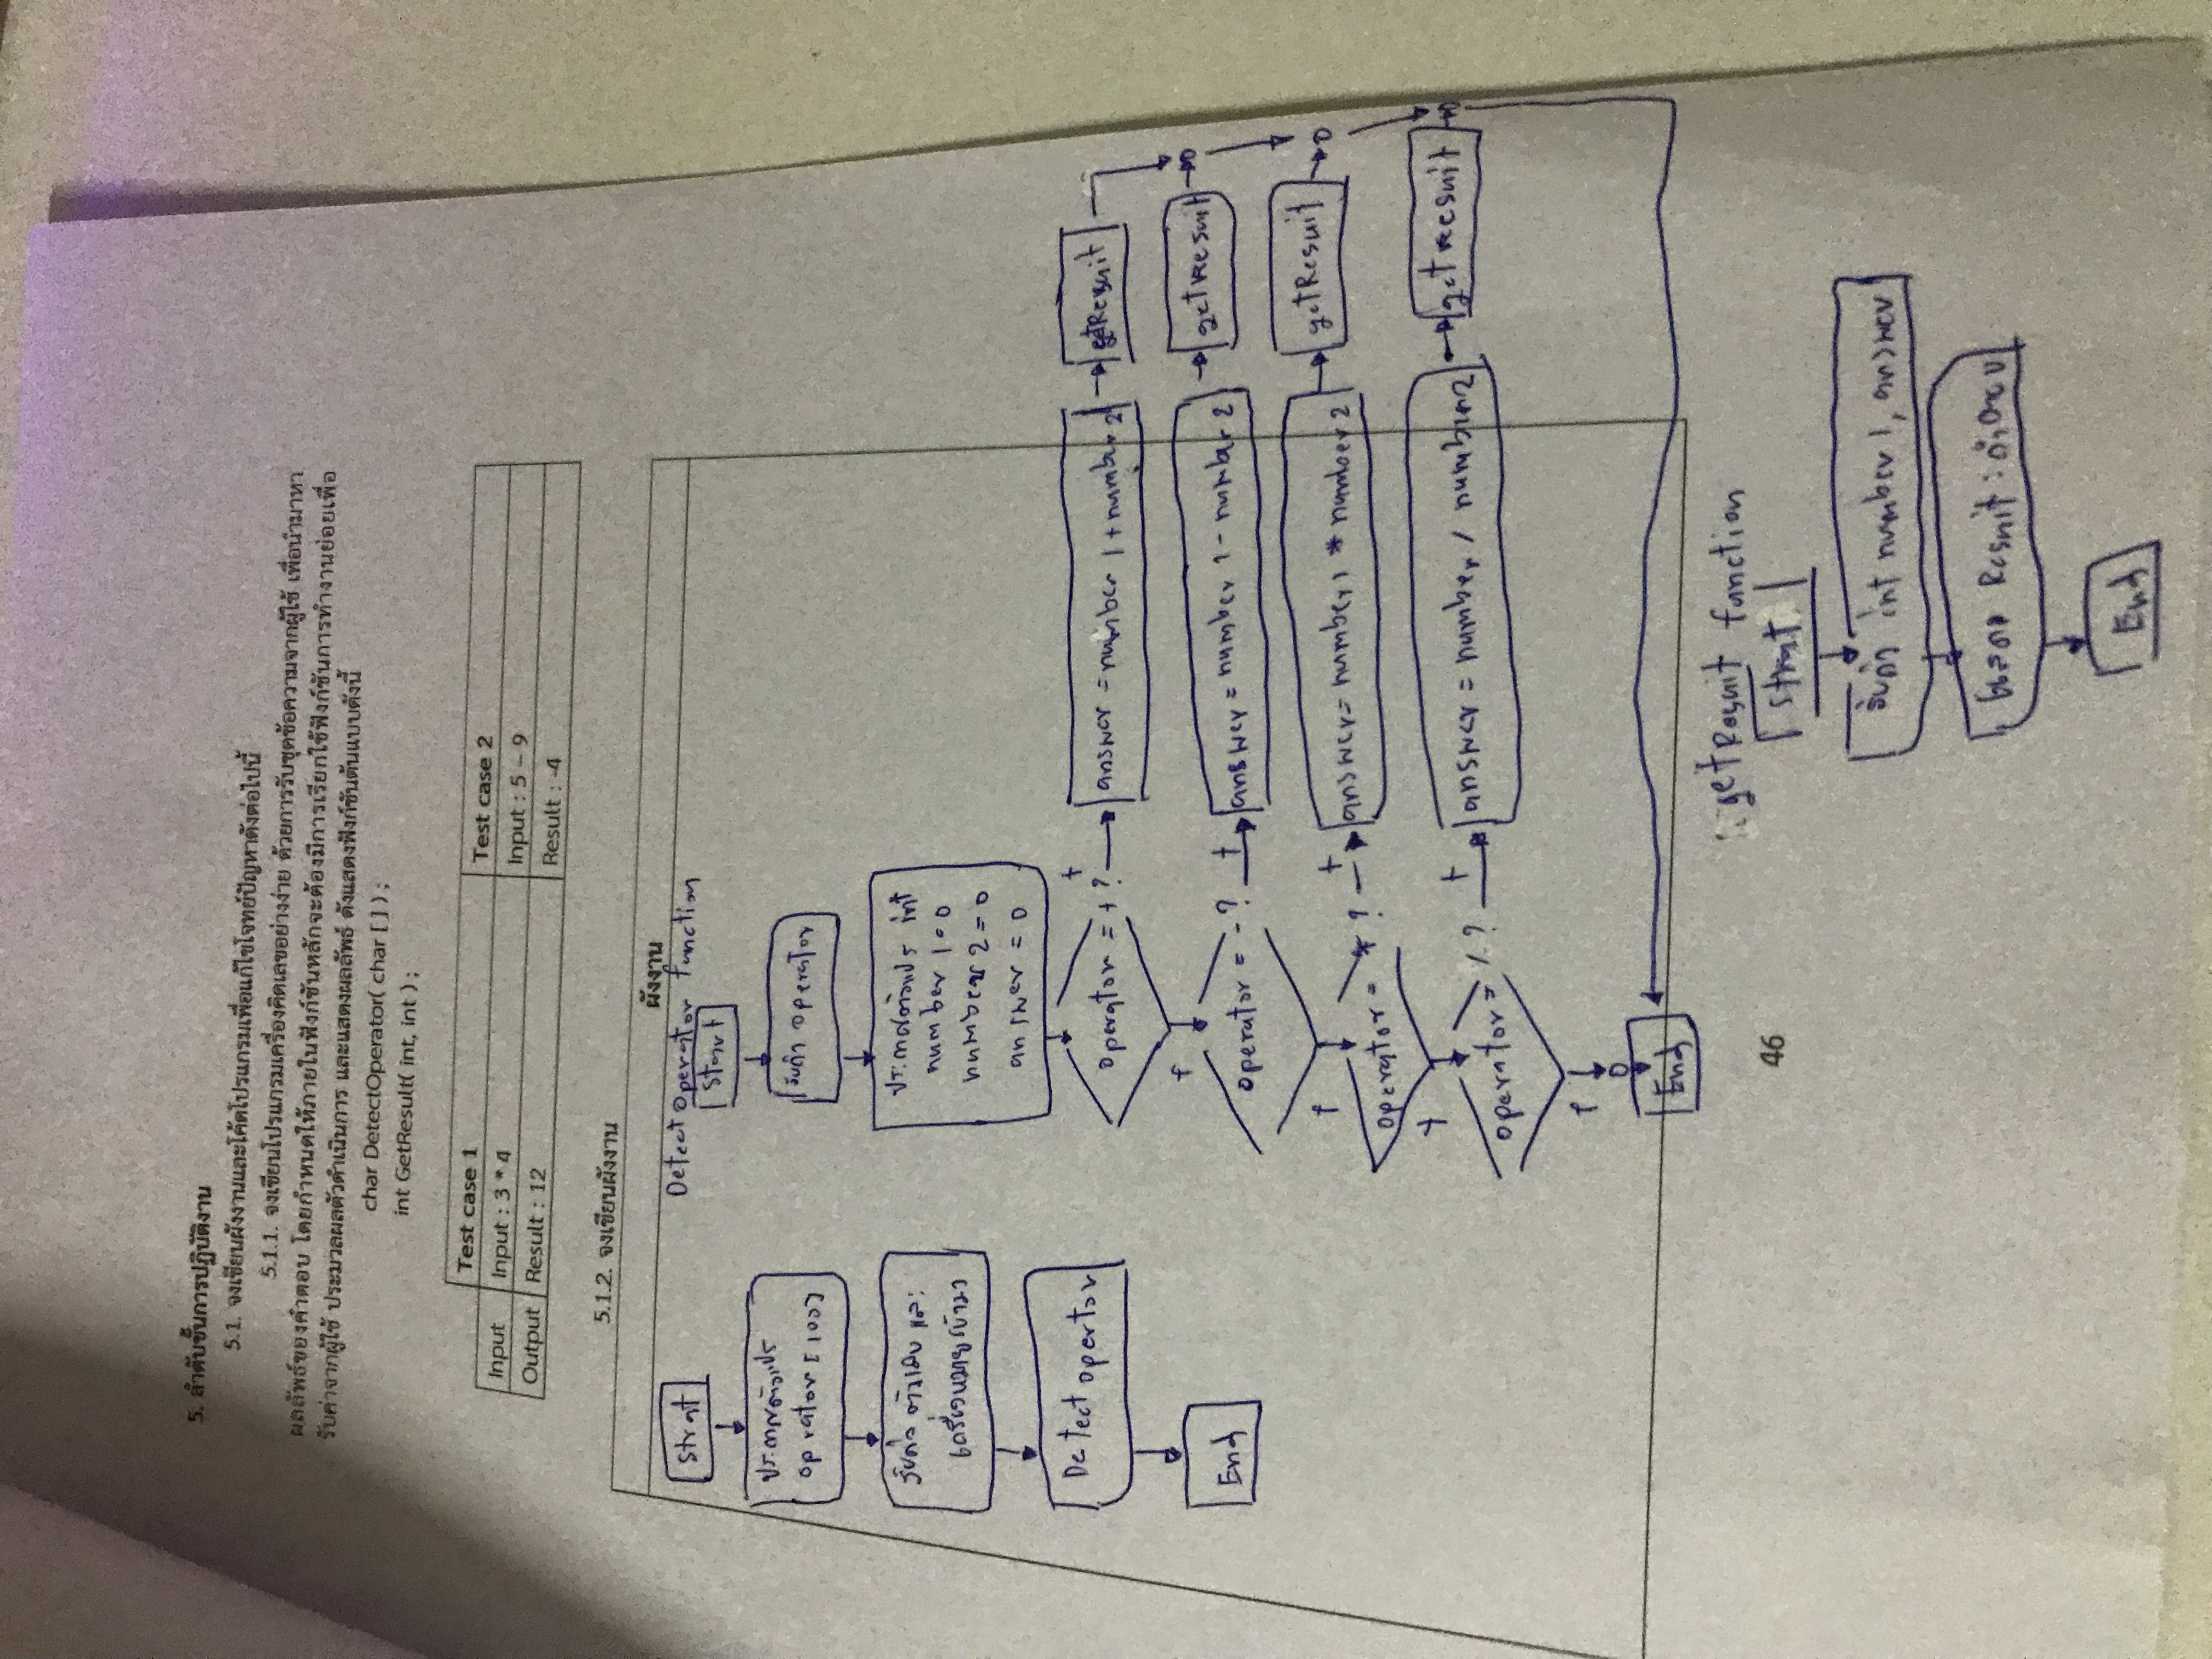 5. ลำดับขั้นการปฏิบัติงาน
5.1. จงเขียนผังงานและโค้ดโปรแกรมเพื่อแก้ไขโจทย์ปัญหาดังต่อไปนี้
5.1.1. จงเขียนโปรแกรมเครื่องคิดเลขอย่างง่าย ด้วยการรับชุดข้อความจากผู้ใช้ เพื่อนำมาหา
ผลลัพธ์ของคำตอบ โดยกำหนดให้ภายในฟังก์ชันหลักจะต้องมีการเรียกใช้ฟังก์ชันการทำงานย่อยเพื่อ
รับค่าจากผู้ใช้ ประมวลผลตัวดำเนินการ และแสดงผลลัพธ์ ดังแสดงฟังก์ชันต้นแบบดังนี้
char DetectOperator( char [ ] ) ;
int GetResult( int, int ) ;
Test case 1 Test case 2
Input Input : 3 * 4 Input : 5 – 9
Output Result : 12 Result : -4
5.1.2. จงเขียนผังงาน
ผังงาน
Strat
ประกาศตัวแปร
oprator [100]
รับค่า ตัวเลข และ
เครื่องหมายเข้ามา
Detect opertor
End
Detect operator function
Start
รับค่า operator
ประกาศตัวแปร int
number 1 = 0
number 2 = 0
answer = 0
operator = + ? t answer = number 1 + number 2 getResuit
f
operator = - ? t answer = number 1 - number 2 getResuit
f
operator = * ? t answer = number 1 * number 2 getResuit
f
operator = / ? t answer = number 1 / number 2 getResuit
f
End
getResuit function
46
Strat
รับค่า int number 1, answer
แสดง Resuit : คำตอบ
End